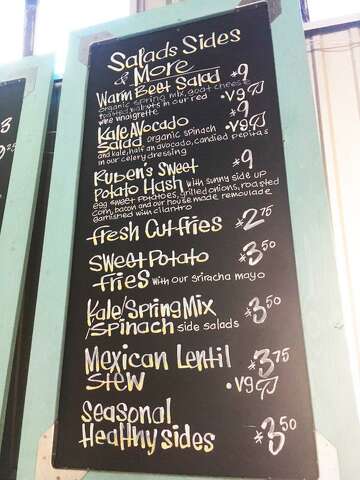 Salads Sides
& More
Warm Beet Salad $9
organic spring mix, goat cheese
roasted walnuts in our red • V GF
wine vinaigrette
Kale Avocado $9
Salad organic spinach • V GF
and kale, half an avocado, candied pepitas
in our celery dressing
Ruben's Sweet $9
Potato Hash with sunny side up
egg sweet potatoes, grilled onions, roasted
corn, bacon and our house made remoulade
garnished with cilantro
Fresh Cut Fries $2.75
Sweet Potato $3.50
Fries with our sriracha mayo
Kale/Spring Mix $3.50
/Spinach side salads
Mexican Lentil $3.75
Stew • Vg GF
Seasonal
Healthy sides $3.50
3